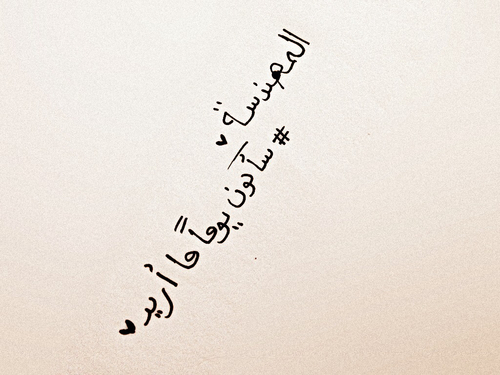 المهندسة ♥
#سأكون يوماً ما أريد ♥